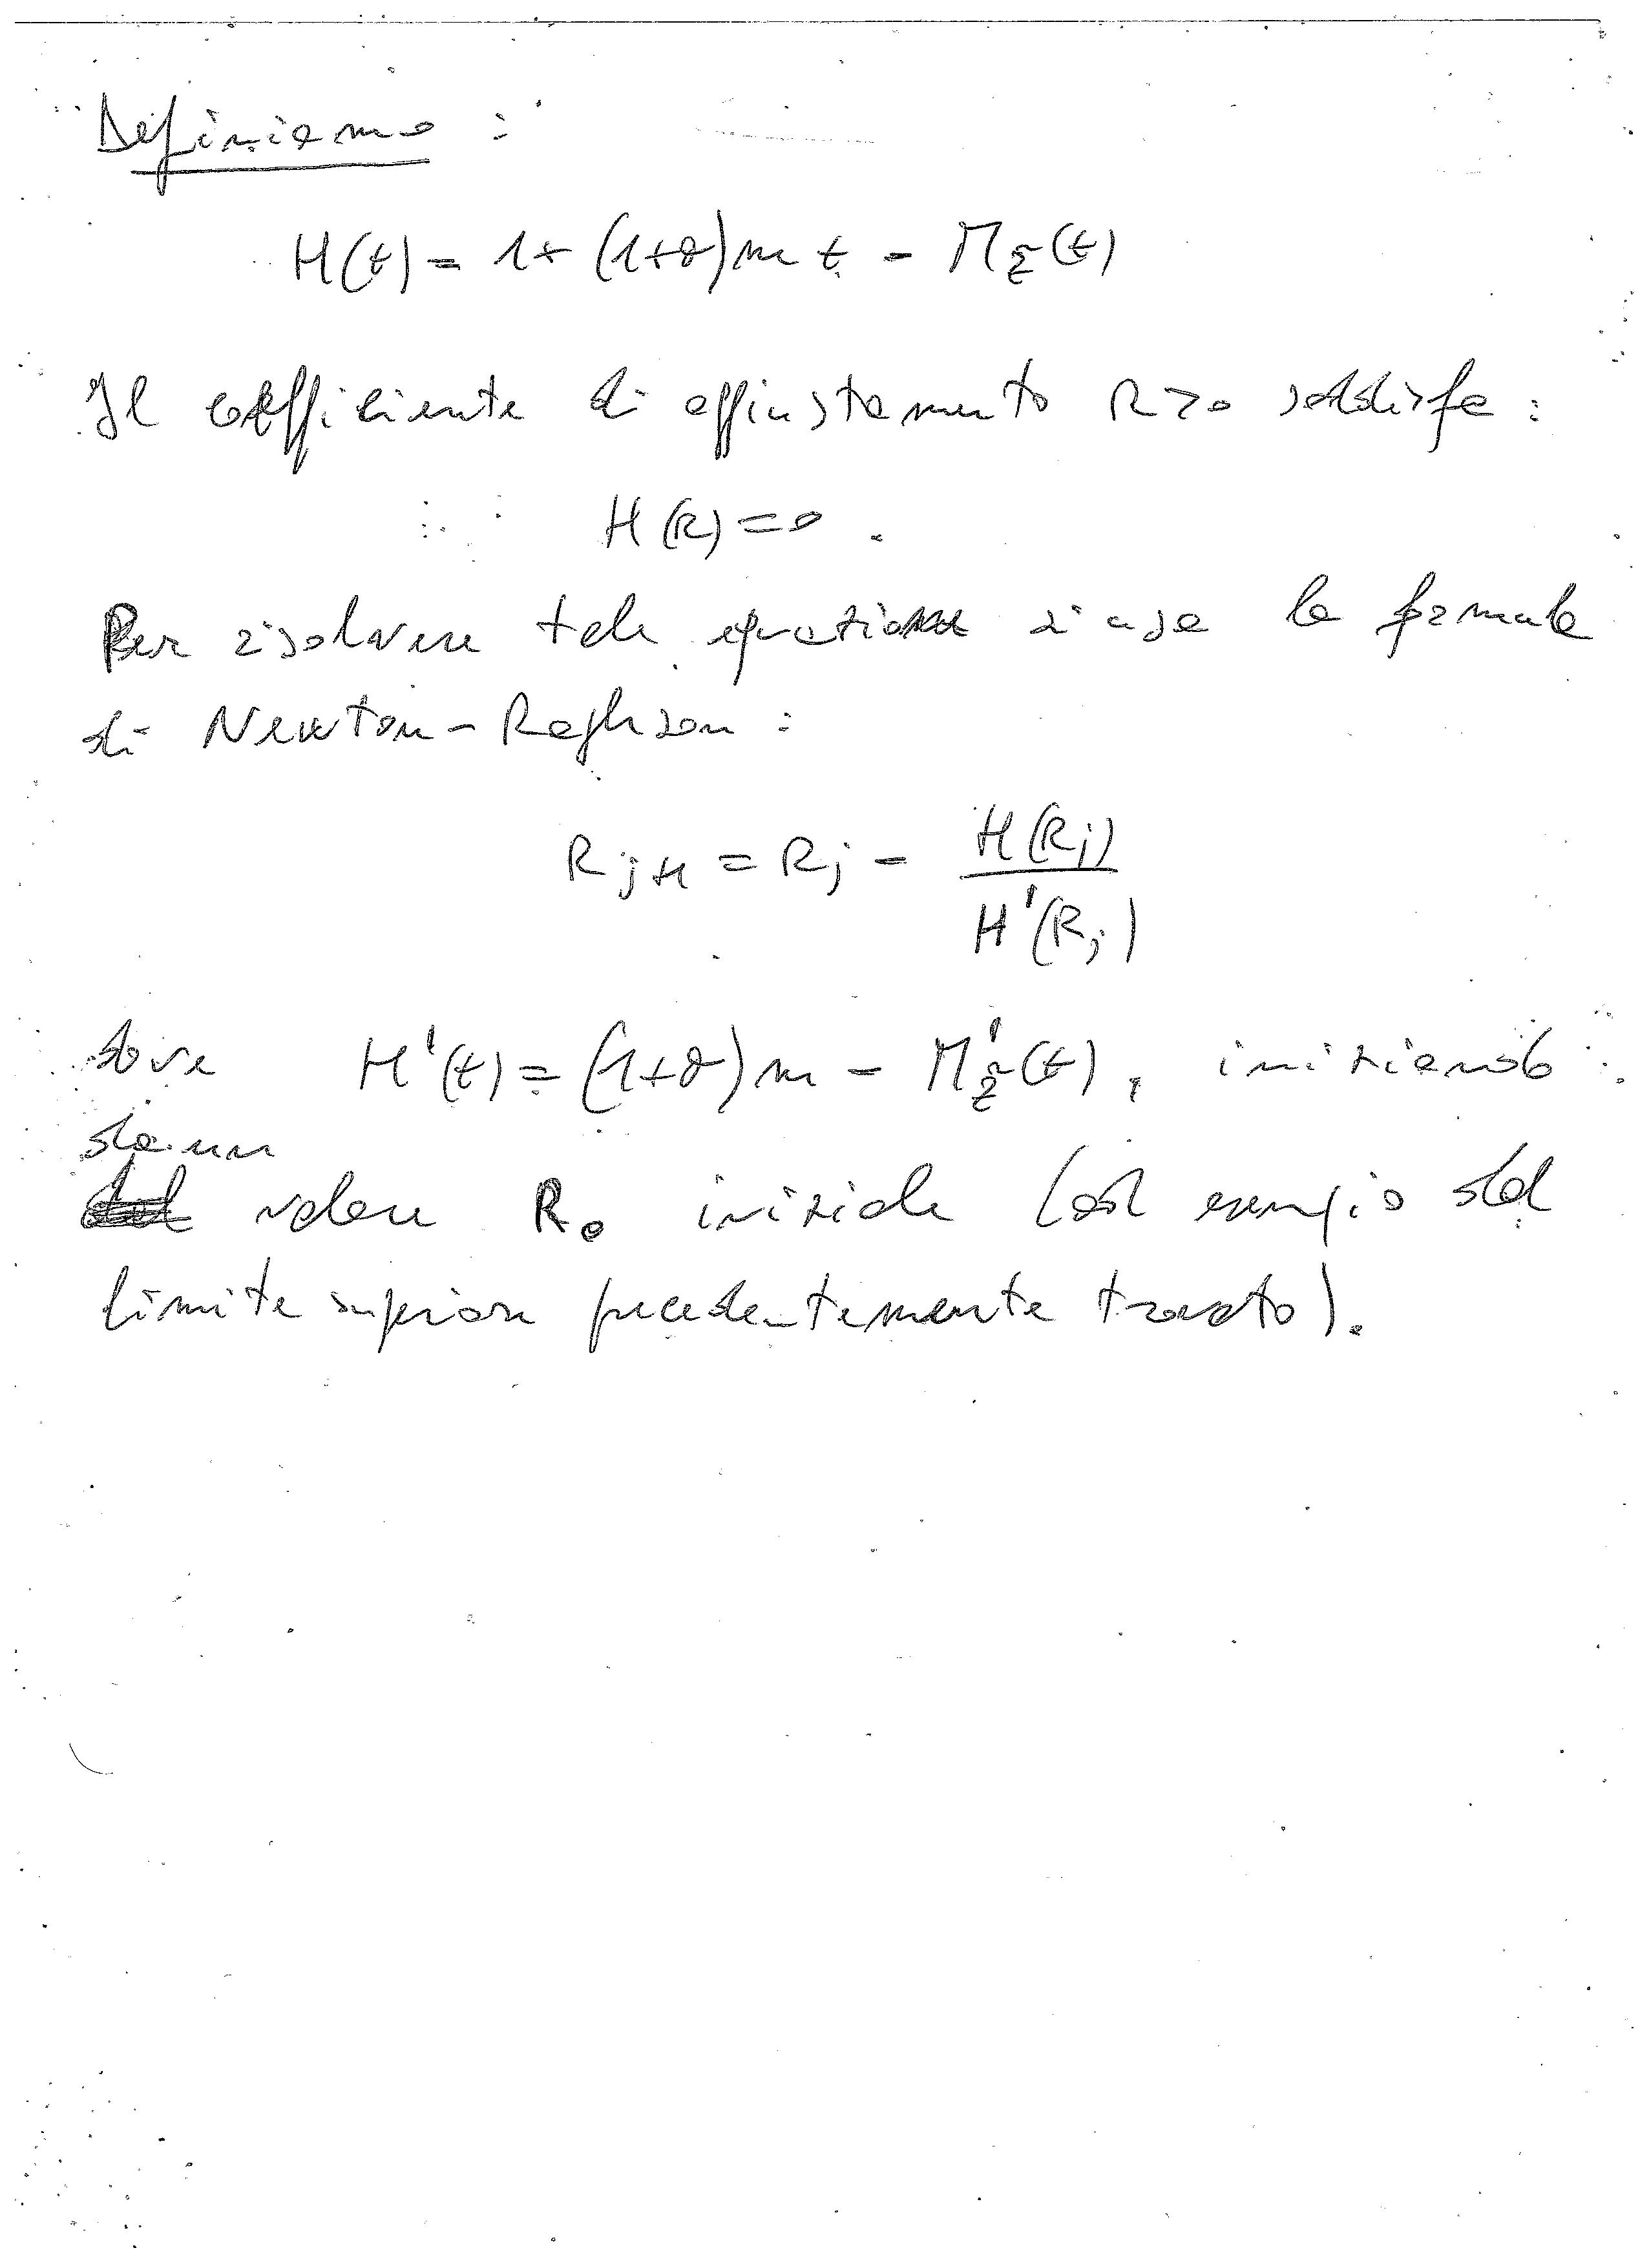 Definiamo :
H(t) = 1 + (1+θ) m t - M_Z̃(t)
Il coefficiente di aggiustamento R>0 soddisfa :
H(R) = 0 .
Per risolvere tale equazione si usa la formula
di Newton - Raphson :
R_{j+1} = R_j - H(R_j) / H'(R_j)
dove H'(t) = (1+θ) m - M'_Z̃(t) , iniziando
da un
valore R_0 iniziale (ad esempio dal
limite superiore precedentemente trovato).